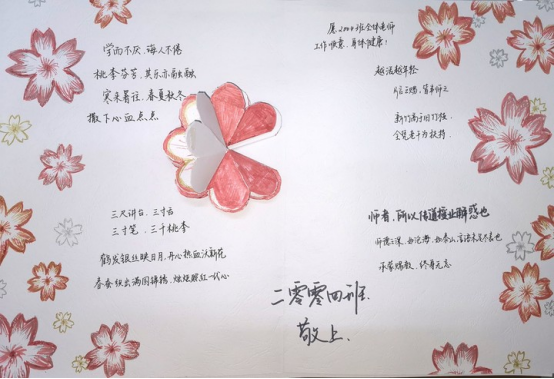 学而不厌 诲人不倦
桃李芬芳，其乐亦融融
寒来暑往，春夏秋冬
撒下心血点点
愿2004班全体老师
工作快意，身体健康！
越活越年轻
片言之赐，皆事师之
新竹高于旧竹枝
全凭老干为扶持.
三尺讲台，三寸舌
三寸笔，三千桃李
鹤发银丝映日月，丹心热血沃新花
春蚕织出满园锦绣，烛炬照红一代心
师者，所以传道授业解惑也
承蒙赐教，终身无忘
二零零四班.
敬上.